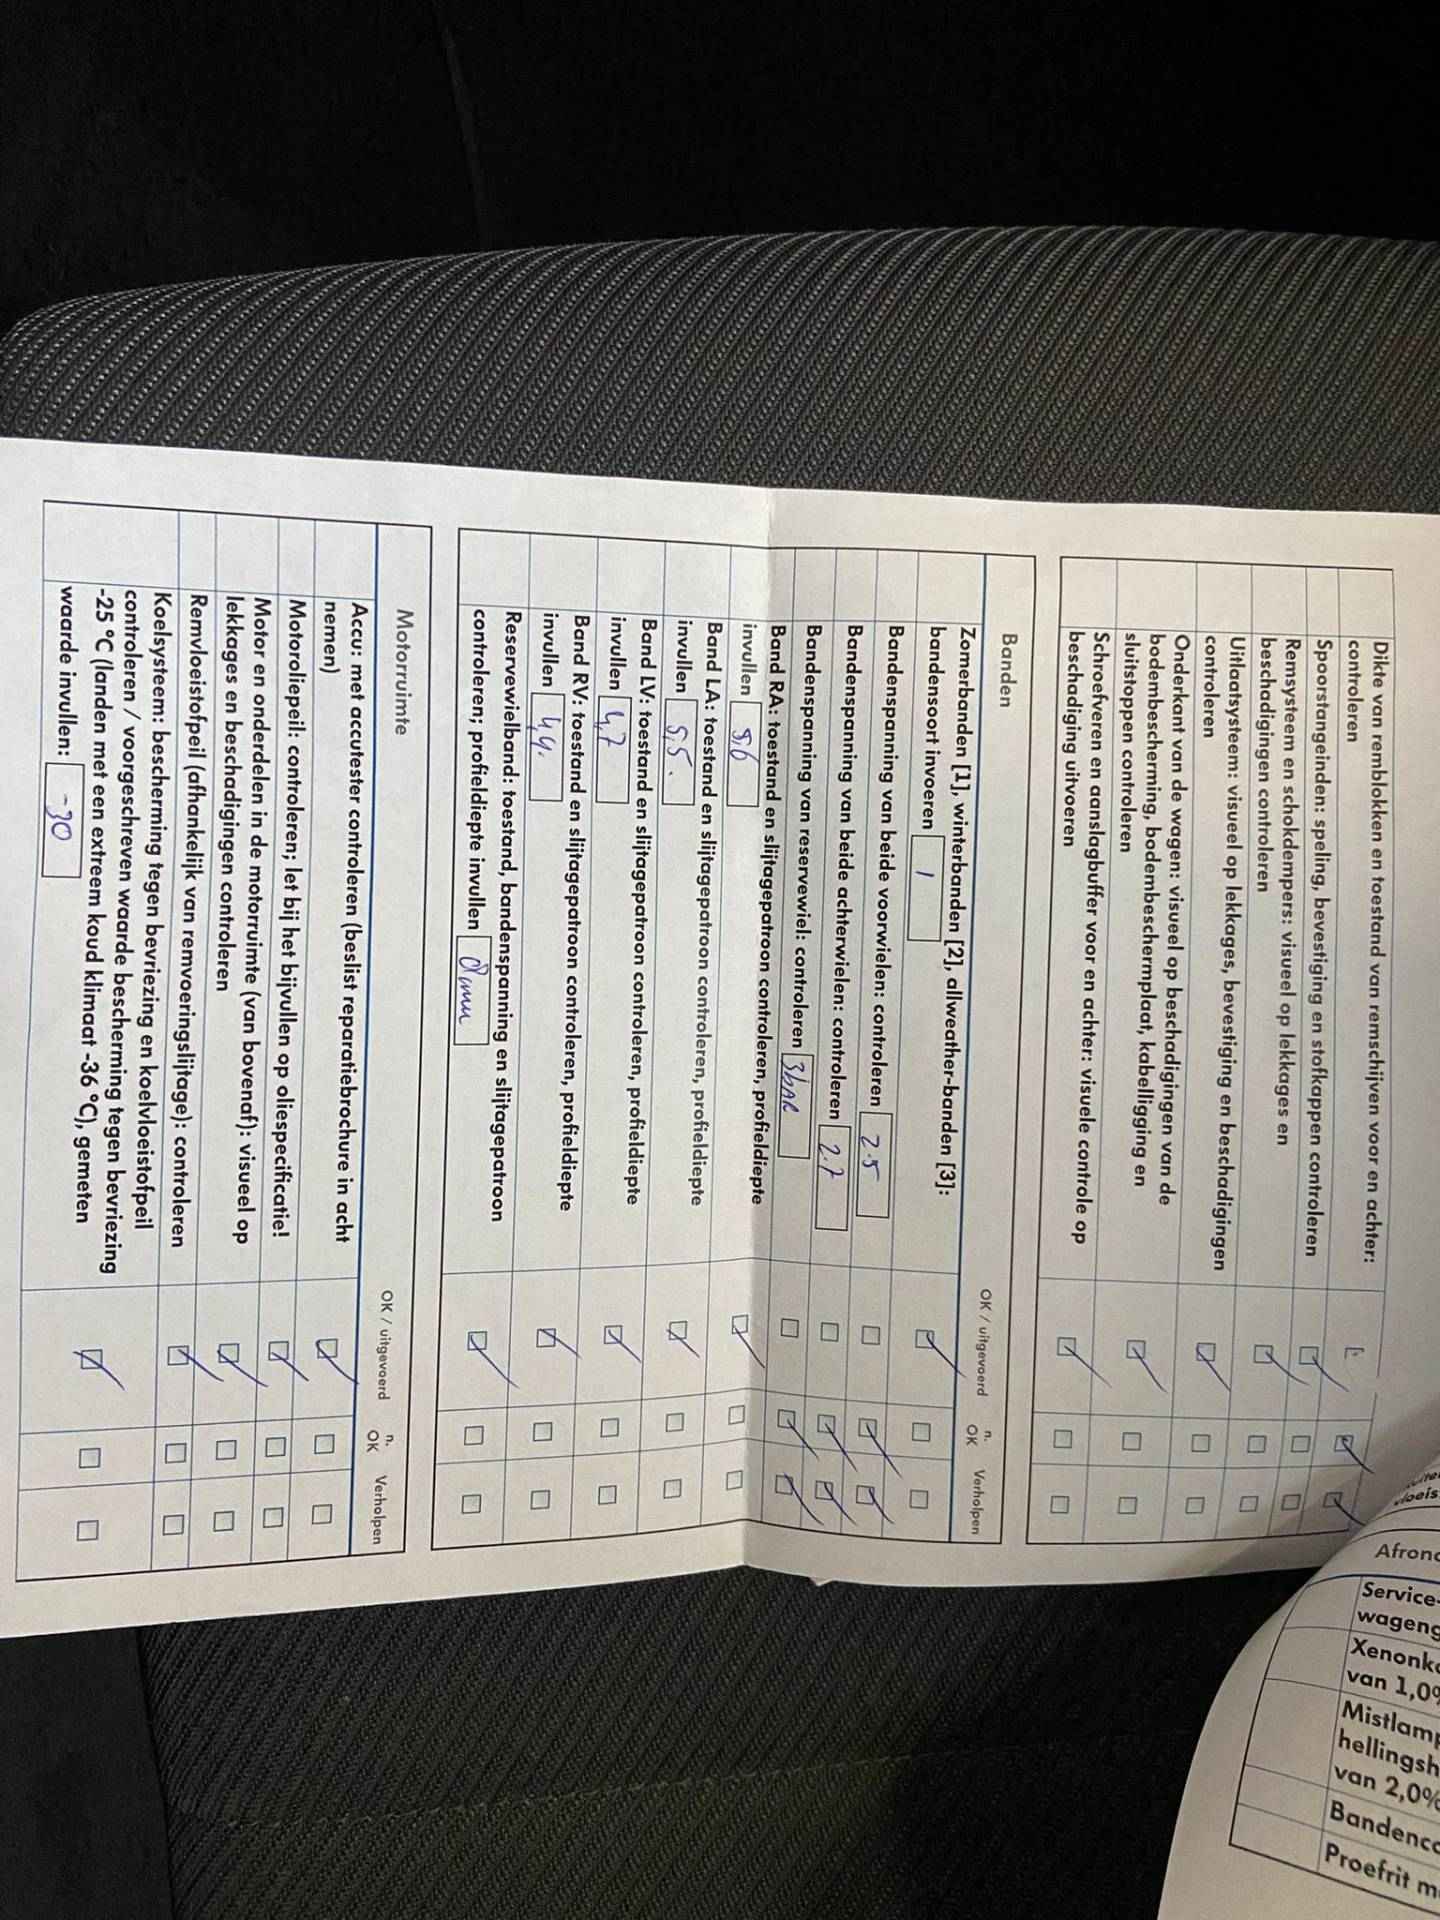 Dikte van remblokken en toestand van remschijven voor en achter:
controleren
Spoorstangeinden: speling, bevestiging en stofkappen controleren
Remsysteem en schokdempers: visueel op lekkages en
beschadigingen controleren
Uitlaatsysteem: visueel op lekkages, bevestiging en beschadigingen
controleren
Onderkant van de wagen: visueel op beschadigingen van de
bodembescherming, bodembeschermplaat, kabelligging en
sluitstoppen controleren
Schroefveren en aanslagbuffer voor en achter: visuele controle op
beschadiging uitvoeren
Banden OK / uitgevoerd n. OK Verholpen
Zomerbanden [1], winterbanden [2], allweather-banden [3]:
bandensoort invoeren 1
Bandenspanning van beide voorwielen: controleren 2.5
Bandenspanning van beide achterwielen: controleren 2.7
Bandenspanning van reservewiel: controleren 3bar
Band RA: toestand en slijtagepatroon controleren, profieldiepte
invullen 5,6
Band LA: toestand en slijtagepatroon controleren, profieldiepte
invullen 5,5.
Band LV: toestand en slijtagepatroon controleren, profieldiepte
invullen 4,7
Band RV: toestand en slijtagepatroon controleren, profieldiepte
invullen 4,4.
Reservewielband: toestand, bandenspanning en slijtagepatroon
controleren; profieldiepte invullen
Motorruimte OK / uitgevoerd n. OK Verholpen
Accu: met accutester controleren (beslist reparatiebrochure in acht
nemen)
Motoroliepeil: controleren; let bij het bijvullen op oliespecificatie!
Motor en onderdelen in de motorruimte (van bovenaf): visueel op
lekkages en beschadigingen controleren
Remvloeistofpeil (afhankelijk van remvoeringslijtage): controleren
Koelsysteem: bescherming tegen bevriezing en koelvloeistofpeil
controleren / voorgeschreven waarde bescherming tegen bevriezing
-25 °C (landen met een extreem koud klimaat -36 °C), gemeten
waarde invullen: -30
Afron
Service-
wageng
Xenonk
van 1,0%
Mistlamp
hellingsh
van 2,0%
Bandenc
Proefrit m